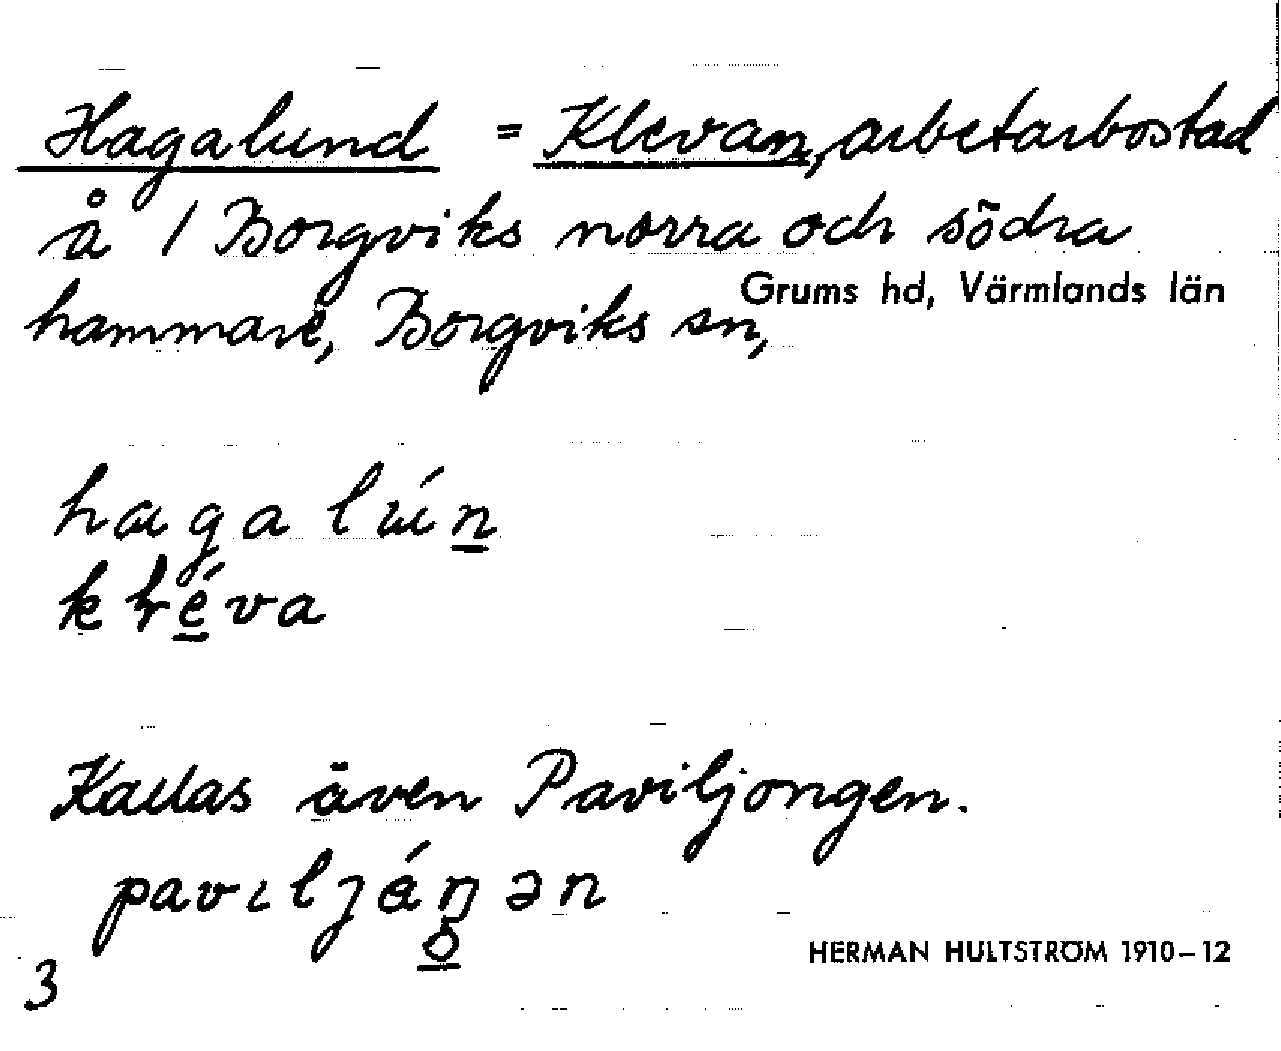 Hagalund = Klevan, arbetarbostad
å 1 Borgviks norra och södra
hammare, Borgviks sn,
Grums hd, Värmlands län
hagalún
kléva
Kallas även Paviljongen.
pavıljåŋən
o
HERMAN HULTSTRÖM 1910–12
3